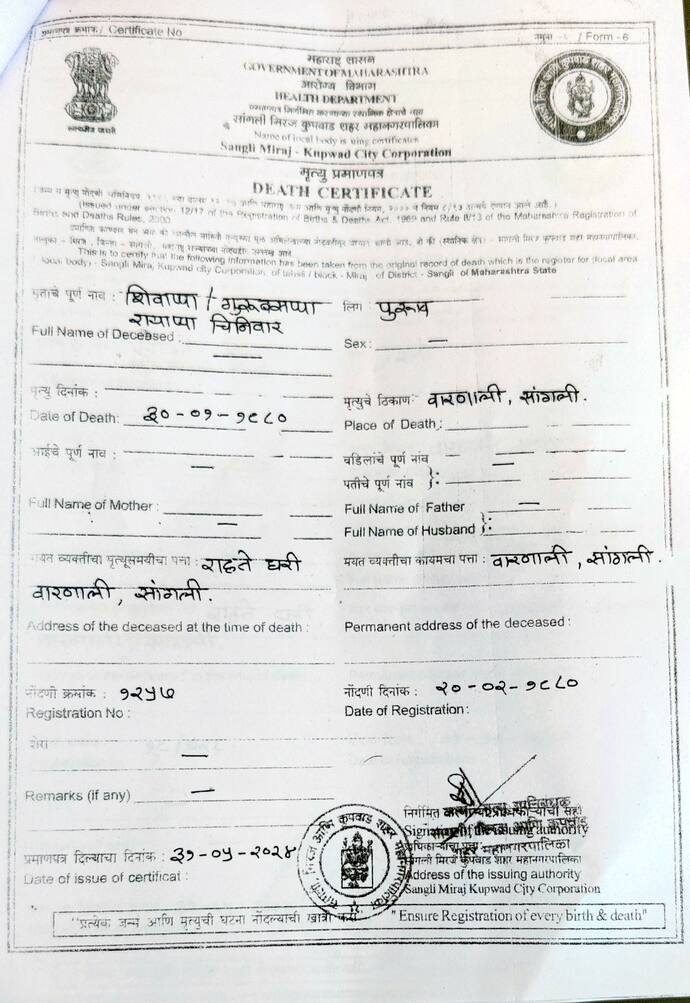 प्रमाणपत्र क्रमांक / Certificate No
नमुना - ६ / Form - 6
महाराष्ट्र शासन
GOVERNMENT OF MAHARASHTRA
आरोग्य विभाग
HEALTH DEPARTMENT
सांगली मिरज कुपवाड शहर महानगरपालिका
Name of local body issuing certificates
Sangli Miraj - Kupwad City Corporation
मृत्यु प्रमाणपत्र
DEATH CERTIFICATE
(Issued under section 12/17 of the Registration of Births & Deaths Act, 1969 and Rule 8/13 of the Maharashtra Registration of
Births and Deaths Rules, 2000
This is to certify that the following information has been taken from the original record of death which is the register for (local area
local body) - Sangli Miraj, Kupwad city Corporation, of tahsil / block - Miraj of District - Sangli of Maharashtra State
मृताचे पूर्ण नाव : शिवाप्पा / गुरूबसाप्पा
रायाप्पा चिनिवार
लिंग : पुरुष
Full Name of Deceased : —
Sex : —
मृत्यु दिनांक :
Date of Death: ३०-०१-१९८०
मृत्युचे ठिकाण: वारणाली, सांगली.
Place of Death :
आईचे पूर्ण नाव : —
वडिलांचे पूर्ण नांव —
पतीचे पूर्ण नांव }:
Full Name of Mother : —
Full Name of Father —
Full Name of Husband }:
मयत व्यक्तीचा मृत्यूसमयीचा पत्ता : राहते घरी
वारणाली, सांगली.
मयत व्यक्तीचा कायमचा पत्ता : वारणाली, सांगली.
Address of the deceased at the time of death :
Permanent address of the deceased :
नोंदणी क्रमांक : १२५७
Registration No :
नोंदणी दिनांक : २०-०२-१९८०
Date of Registration :
शेरा —
Remarks (if any) —
Signature of the issuing authority
प्रमाणपत्र दिल्याचा दिनांक : ३१-०५-२०२४
Date of issue of certificat :
सांगली मिरज कुपवाड शहर महानगरपालिका
Address of the issuing authority
Sangli Miraj Kupwad City Corporation
सांगली मिरज आणि कुपवाड शहर महानगरपालिका
"प्रत्येक जन्म आणि मृत्युची घटना नोंदल्याची खात्री करा"
"Ensure Registration of every birth & death"